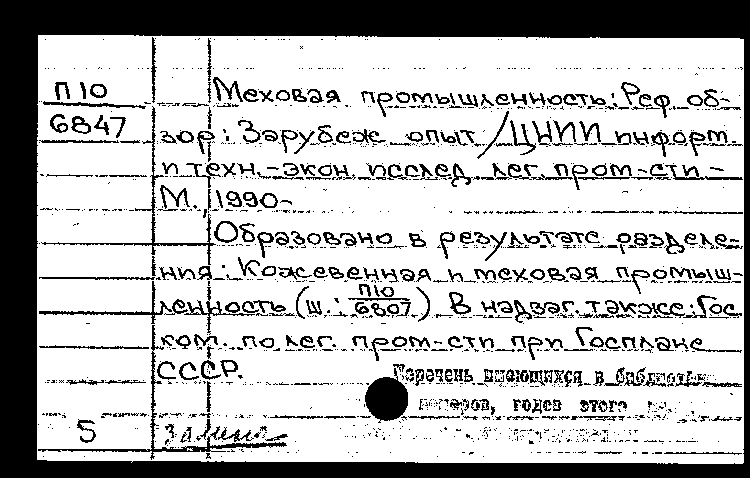 П10
6847
Меховая промышленность: Реф. об-
зор: Зарубеж опыт / ЦНИИ информ.
и техн.-экон. исслед. лег. пром-сти -
М., 1990-
Образовано в результате разделе-
ния: Кожевенная и меховая промыш-
ленность (ш.: П10/6807). В надзаг. также: Гос.
ком. по лег. пром-сти при Госплане
СССР.
Перечень имеющихся в библиотеке
номеров, годов этого
5
Замена